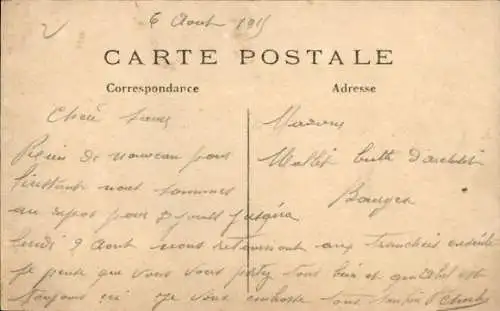 6 Aout 1915
CARTE POSTALE
Correspondance
Adresse
Madame
Mallet butte d'archelet
Bourges
Chère
Rien de nouveau pour
l'instant nous sommes
au repos pour 8 jours jusqu'a
lundi 9 Aout nous retournont aux tranchées ensuite
je pense que vous vous portez tous bien et que est
toujours ici Je vous embrasse tous